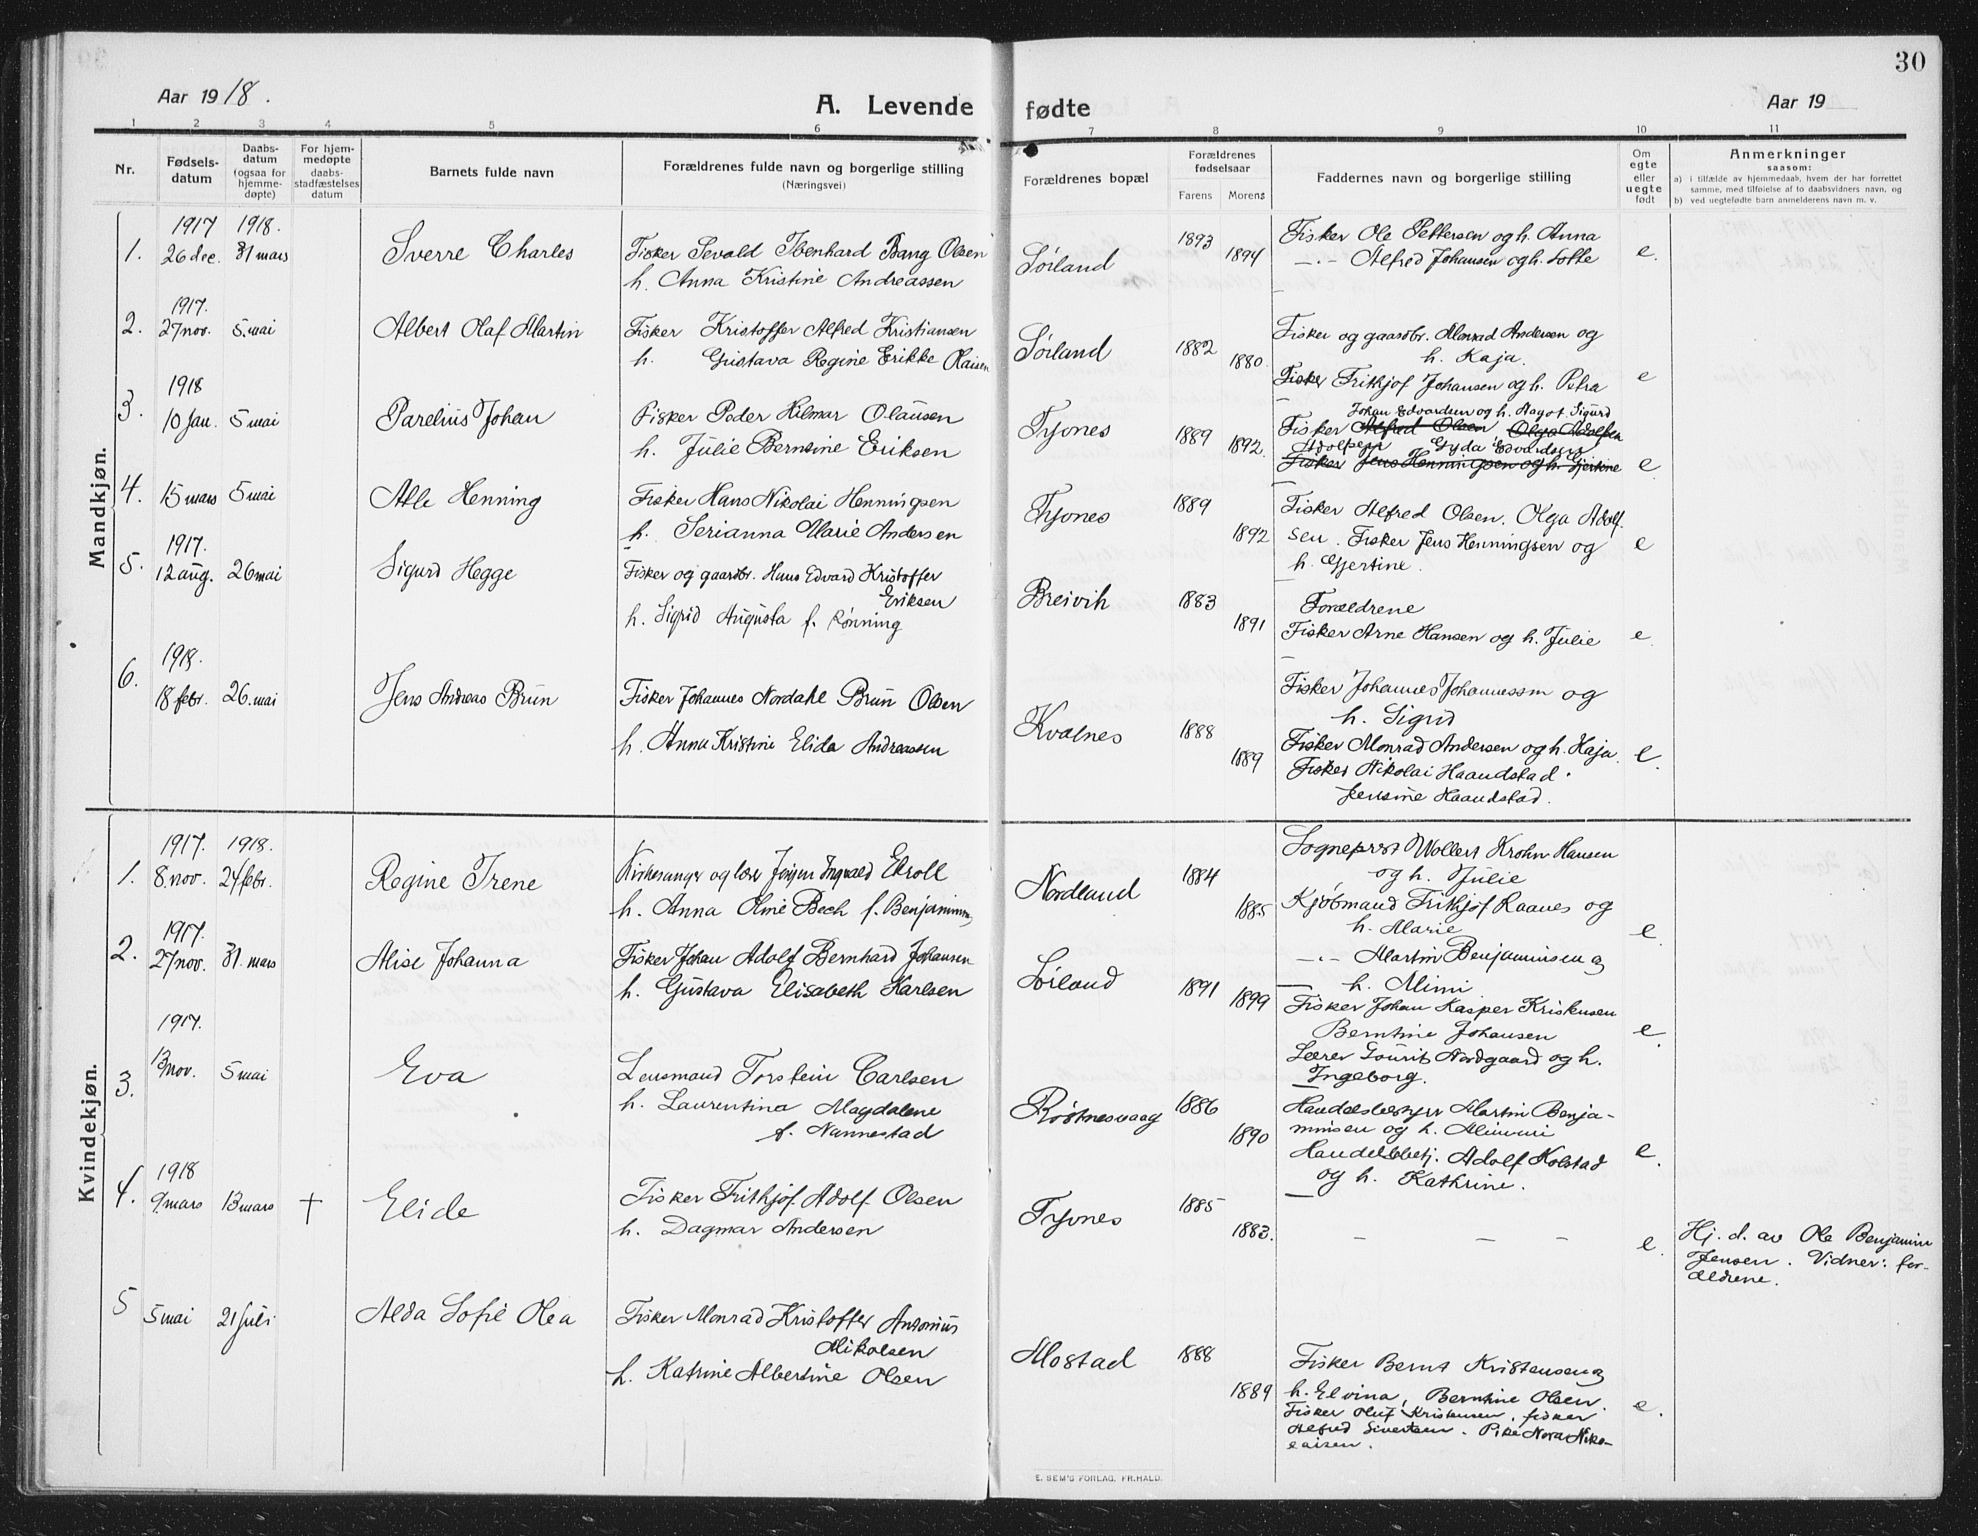 30
Aar 1918.
A. Levende fødte
Aar 19
1 2 3 4 5 6 7 8 9 10 11
Nr.
Fødselsdatum
Daabsdatum (ogsaa for hjemmedøpte)
For hjemmedøpte daabsstadfæstelses datum
Barnets fulde navn
Forældrenes fulde navn og borgerlige stilling
(Næringsvei)
Forældrenes bopæl
Forældrenes fødselsaar
Farens Morens
Faddernes navn og borgerlige stilling
Om egte eller uegte født
Anmerkninger
saasom:
a) i tilfælde av hjemmedaab, hvem der har forrettet samme, med tilføielse af to daabsvidners navn, og
b) ved uegtefødte barn anmelderens navn m. v.
Mandkjøn.
1917 1918.
1. 26 dec. 31 mars Sverre Charles
Fisker Sevald Ibenhard Bang Olsen
h. Anna Kristine Andreassen
Sørland 1893 1894
Fisker Ole Pettersen og h. Anna
-"- Alfred Johansen og h. Lotte
e.
1917.
2. 27 nov. 5. mai Albert Olaf Martin
Fisker Kristoffer Alfred Kristiansen
h. Gustava Regine Erikke Olaisen
Sørland 1882 1880
Fisker og gaardbr. Monrad Andersen og
h. Kaja.
Fisker Frithjof Johansen og h. Petra
e
1918
3. 10 jan. 5 mai Parelius Johan
Fisker Peder Hilmar Olausen
h. Julie Berntine Eriksen
Tyvnes 1889 1892.
Johan Edvardsen og h. Hagot. Sigurd
Fisker Alfred Olsen Olga Adolfsen
Adolfsen Gyda Edvardsen
Fisker Jens Henningsen og h. Gjertine
e
4. 15 mars 5 mai Atle Henning
Fisker Hans Nikolai Henningsen
h. Serianna Marie Andersen
Tyvnes 1889 1892
Fisker Alfred Olsen. Olga Adolf-
sen. Fisker Jens Henningsen og
h. Gjertine.
e
1917.
5. 12 aug. 26 mai Sigurd Hegge
Fisker og gaardbr. Hans Edvard Kristoffer
Eriksen
h. Sigrid Augusta f. Rønning
Breivik 1883 1891
Forældrene
Fisker Arne Hansen og h. Julie
e.
1918.
6. 18 febr. 26. mai Jens Andreas Brun
Fisker Johannes Nordahl Brun Olsen
h. Anna Kristine Elida Andreassen
Kvalnes 1888 1889
Fisker Johannes Johannessen og
h. Sigrid
Fisker Monrad Andersen og h. Kaja.
Fisker Nikolai Haandstad.
Jensine Haandstad.
e.
Kvindekjøn.
1917. 1918.
1. 8. nov. 24 febr. Regine Irene
Kirkesanger og lærer Jørgen Ingvald Ekroll
h. Anna Oline Bech f. Benjaminsen
Nordland 1884 1885
Sogneprest Wollert Krohn Hansen
og h. Julie
Kjøbmand Frithjof Raanes og
h. Marie
-"- Martin Benjaminsen og
h. Mimi
e.
1917.
2. 27 nov. 31. mars Alise Johanna
Fisker Johan Adolf Bernhard Johansen
h. Gustava Elisabeth Karlsen
Sørland 1891 1899
Fisker Johan Kasper Kristensen
Berntine Johansen
Lærer Gourit Nordgaard og h.
Ingeborg.
e.
1917.
3. 13 nov. 5 mai Eva
Lensmand Torstein Carlsen
h. Laurentina Magdalene
f. Nannestad
Røstnesvaag 1886 1890
Handelsbestyrer Martin Benja-
minsen og h. Mimmi
Handelsbetj. Adolf Kolstad
og h. Kathrine.
e.
1918
4. 9. mars 13 mars † Elide
Fisker Frithjof Adolf Olsen
h. Dagmar Andersen
Tyvnes 1885 1883.
- - - -
e.
Hj. d. av Ole Benjamin
Jensen. Vidner: for-
ældrene.
5 5 mai 21 juli Alda Sofie Olea
Fisker Monrad Kristoffer Antonius
Mikalsen
h. Katrine Albertine Olsen
Mostad 1888 1889
Fisker Bernt Kristensen og
h. Elvina, Berntine Olsen.
Fisker Oluf Kristensen, fisker
Alfred Sivertsen. Pike Nora Niko-
laisen.
e.
E. SEM'S FORLAG, FR.HALD.